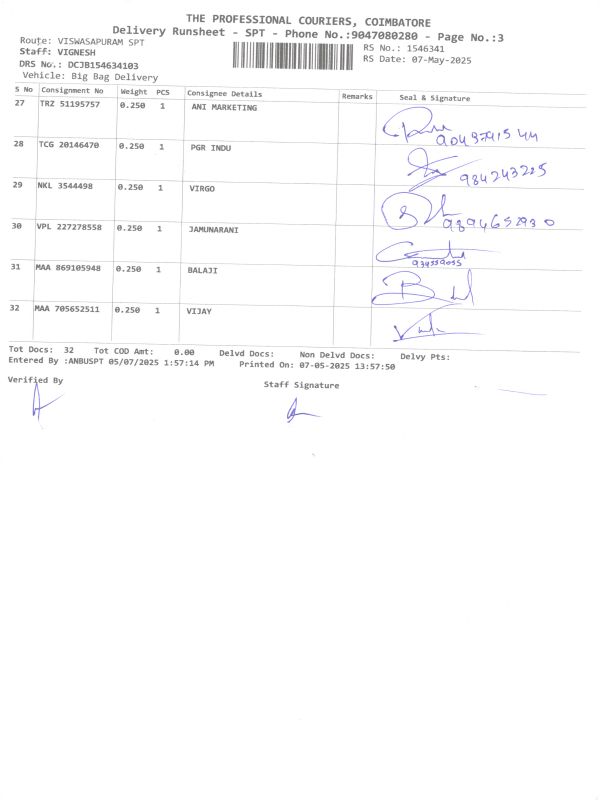 THE PROFESSIONAL COURIERS, COIMBATORE
Delivery Runsheet - SPT - Phone No.:9047080280 - Page No.:3
Route: VISWASAPURAM SPT
RS No.: 1546341
Staff: VIGNESH
RS Date: 07-May-2025
DRS No.: DCJB154634103
Vehicle: Big Bag Delivery
S No Consignment No Weight PCS Consignee Details Remarks Seal & Signature
27 TRZ 51195757 0.250 1 ANI MARKETING
28 TCG 20146470 0.250 1 PGR INDU
984243225
29 NKL 3544498 0.250 1 VIRGO
9894652930
30 VPL 227278558 0.250 1 JAMUNARANI
31 MAA 869105948 0.250 1 BALAJI
32 MAA 705652511 0.250 1 VIJAY
Tot Docs: 32 Tot COD Amt: 0.00 Delvd Docs: Non Delvd Docs: Delvy Pts:
Entered By :ANBUSPT 05/07/2025 1:57:14 PM Printed On: 07-05-2025 13:57:50
Verified By Staff Signature